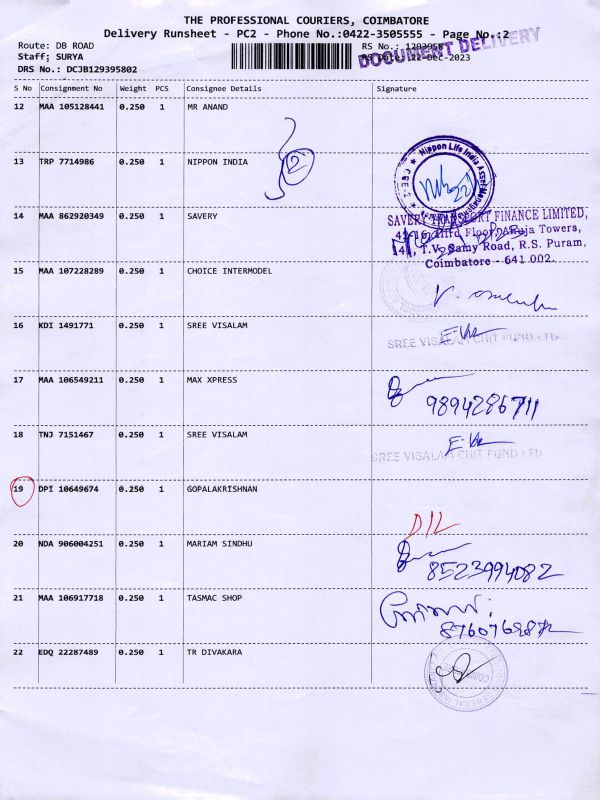 THE PROFESSIONAL COURIERS, COIMBATORE
Delivery Runsheet - PC2 - Phone No.:0422-3505555 - Page No.:2
Route: DB ROAD
Staff; SURYA
DRS No.: DCJB129395802
RS No.: 1293958
22-Dec-2023
DOCUMENT DELIVERY
S No Consignment No Weight PCS Consignee Details Signature
12 MAA 105128441 0.250 1 MR ANAND
2
13 TRP 7714986 0.250 1 NIPPON INDIA
Nippon Life India Asset
14 MAA 862920349 0.250 1 SAVERY
SAVERY TRANSPORT FINANCE LIMITED,
Third Floor, Ahuja Towers,
T.V. Samy Road, R.S. Puram,
Coimbatore - 641 002.
15 MAA 107228289 0.250 1 CHOICE INTERMODEL
16 KDI 1491771 0.250 1 SREE VISALAM
SREE VISALAM CHIT FUND LTD
17 MAA 106549211 0.250 1 MAX XPRESS
9894286711
18 TNJ 7151467 0.250 1 SREE VISALAM
SREE VISALAM CHIT FUND LTD
19 DPI 10649674 0.250 1 GOPALAKRISHNAN
D/L
20 NDA 906004251 0.250 1 MARIAM SINDHU
8523994082
21 MAA 106917718 0.250 1 TASMAC SHOP
22 EDQ 22287489 0.250 1 TR DIVAKARA